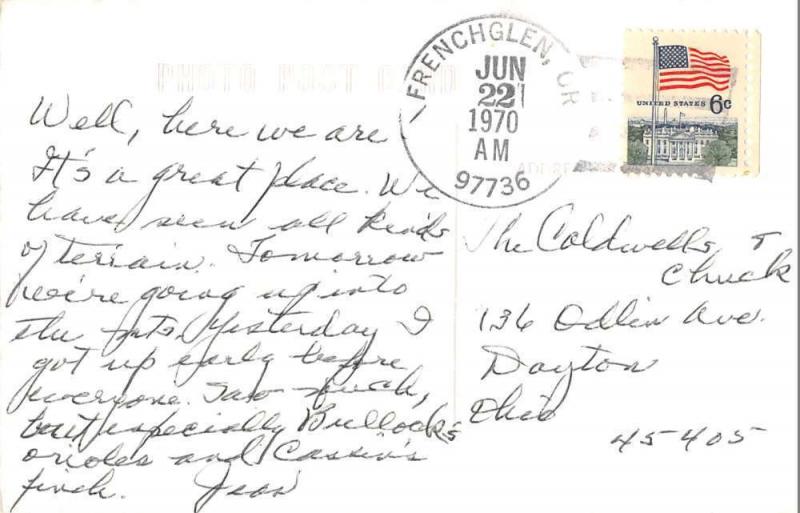 PHOTO POST CARD
FRENCHGLEN, OR
JUN
22
1970
AM
97736
UNITED STATES 6c
Well, here we are
It's a great place. We
have seen all kinds
of terrain. Tomorrow
we're going up into
the mts. Yesterday I
got up early before
everyone. Saw much,
but especially Bullock's
orioles and Cassin's
finch. Jean
The Caldwells &
Chuck
136 Odlin Ave.
Dayton
Ohio
45405